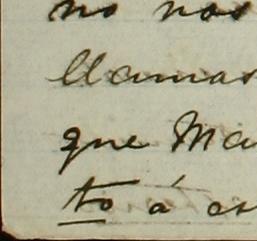 no nos
llamas
que Ma
to á es